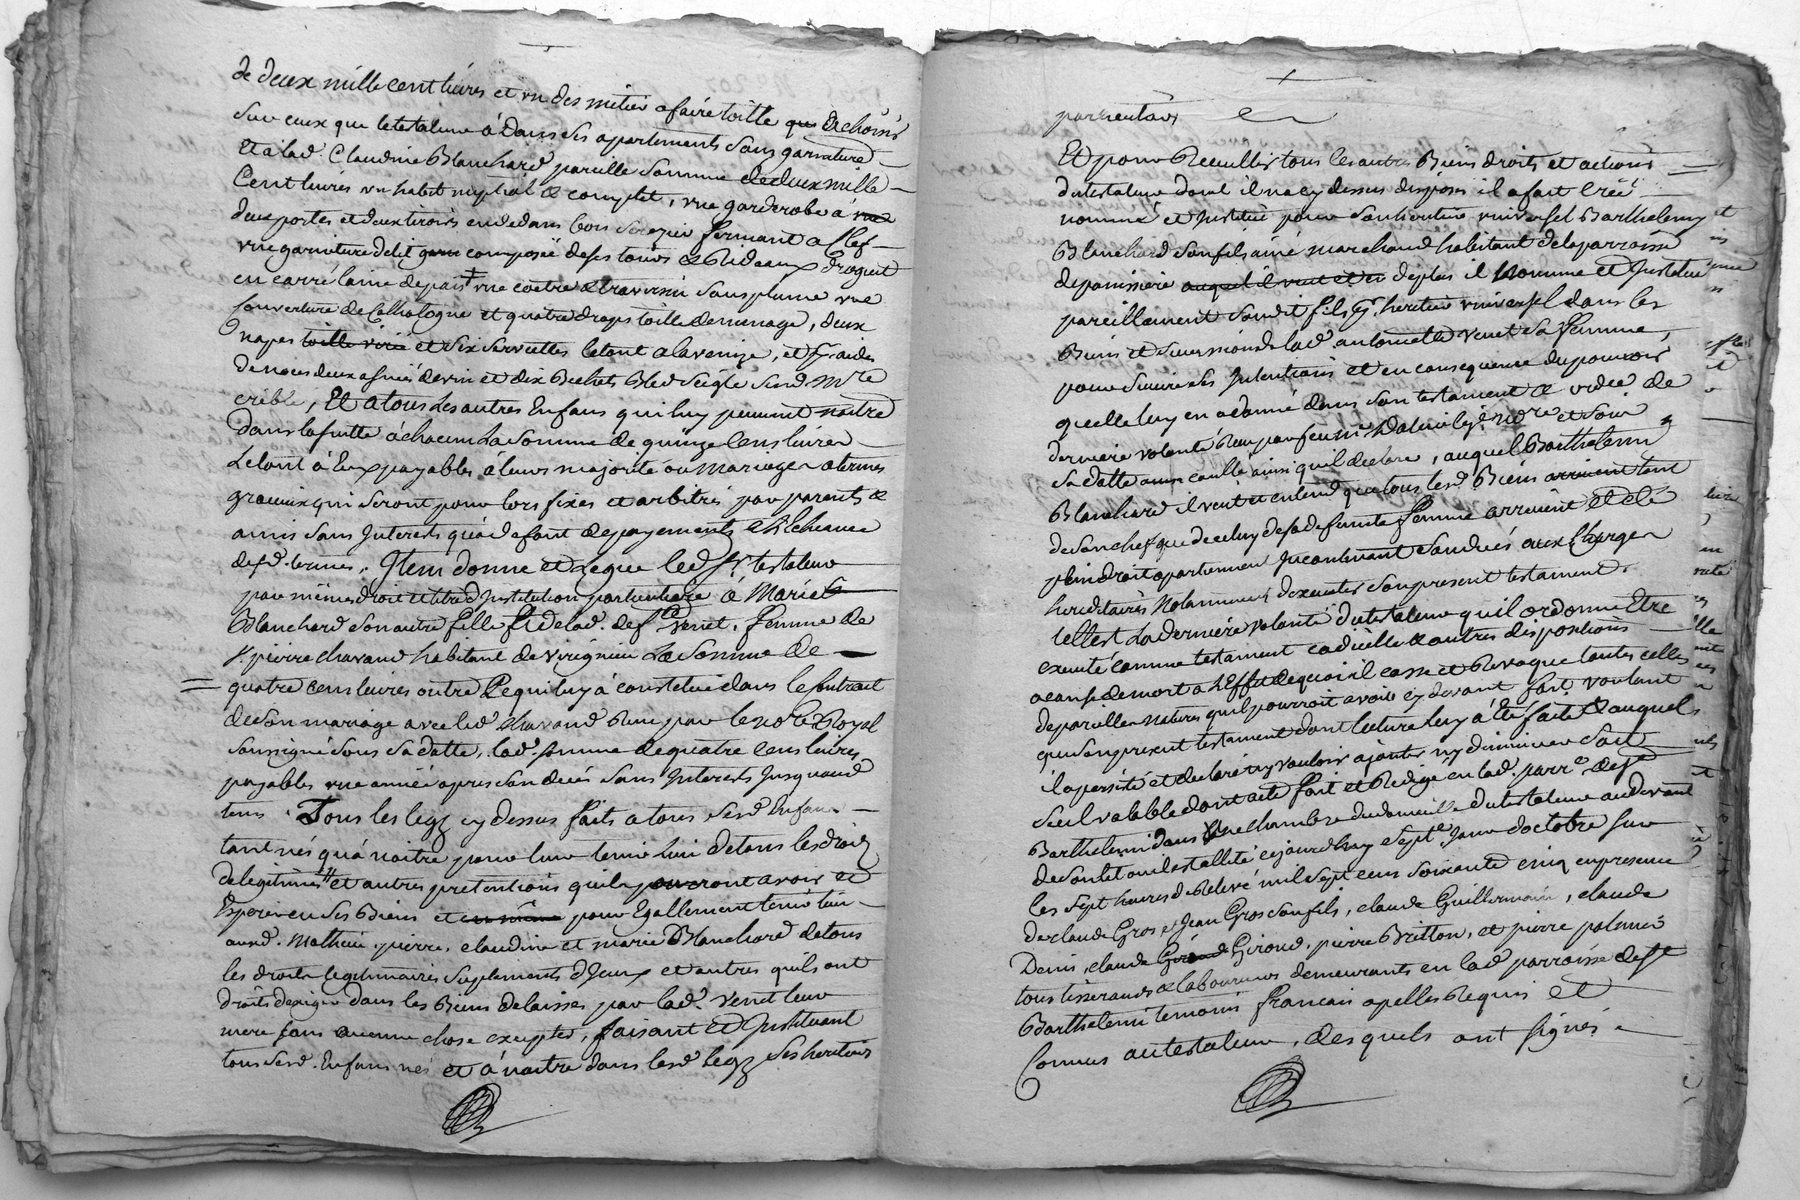 de deux mille cent livres et un des metier a faire toille que a choisir
sur ceux que le testateur à dans ses apartements sans garniture
Et a lad. Claudine Blanchard pareille somme de deux mille
Cent livres un habit nuptial & complet, une garderobe à
deux portes et deux tiroirs en dedans bois serezier fermant a clef
une garniture de lit composée de ses tours & Rideaux droguet
en carré laine de pais + une coëtre & traversin sans plume une
Couverture de Cathalogne et quatre draps toille de menage, deux
napes toille et six serviettes letout a la venize, et
de nous deux asnées de vin et dix Bichets Bled seigle
crible, Et a tous Les autres Enfans qui luy peuvent naitre
dans la suitte à chacun La somme de quinze Cens livres
Letout à Eux payables à leurs majorité ou mariage a termes
gracieux qui seront pour lors fixés et arbitrés par parents &
amis sans Interets qu'a defaut de payements a L'Echeance
desd. termes. Item donne et Legue led. Sr. testateur
par mêmes droit et titre d'Institution particuliere à Marie
Blanchard son autre fille & de lad. deff. Venet, femme de
Sr. pierre chavand habitant de Virigneu La somme de
quatre cens livres outre Ce qui luy à constitué dans le Contrat
de son mariage avec led. chavand Reçu par le nore Royal
soussigné sous sa datte, lad. somme de quatre Cens livres
payables une année apres son decés sans Interets Jusqu'aud.
tems. Tous les legz cy dessus faits a tous sesd. Enfans
tant nés qu'a naitre pour leur tenir lieu de tous les droits
de legitimes et autres pretentions qu'ils pourront avoir et
Esperer en ses Biens et en même pour Egallement tenir lieu
auxd. Mathieu, pierre, claudine et marie Blanchard de tous
les droits legitimaires suplements d'Iceux et autres qu'ils ont
droits d'exiger dans les Biens delaissés par lad. Venet leur
mere sans aucune chose excepter, faisant et Instituant
tous sesd. Enfans nés et à naitre dans lesd. legz ses heritiers
particuliers
Et pour Recueillir tous les autres Biens droits et actions
du testateur dont il n'a cy dessus disposé il a fait Creé
nommé et Institué pour son heritier universel Barthelemy
Blanchard son fils ainé marchand habitant de la parroisse
de panissiere auquel il veut et en deplus il Nomme et Institue
pareillement sond. fils heritier universel dans les
Biens et succession de lad. antoinette Venet sa femme,
pour suivre ses Intentions et en consequence du pouvoir
quelle luy en a donné dans son testament & ordre de
derniere volonté Reçu par feu me Dalmais nore et sous
sa datte ainsi qu'il declare, auquel Barthelemi
Blanchard il veut et entend que tous lesd. Biens tant
de son chef que de celuy de sa defunte femme arrivent et de
plein droit apartiennent Incontinant son decés aux Charges
hereditaires Notamment d'executer son present testament.
telle est La derniere volonté du testateur qu'il ordonne Etre
executé comme testament codicille & autres dispositions
a cause de mort a L'Effet de quoi il casse et Revoque toutes celles
de pareilles natures qu'il pourroit avoir cy devant fait, voulant
que son present testament dont lecture luy à Eté faite & auquel
il a persisté et declaré n'y vouloir ajouter ny diminuer soit
seul valable dont acte fait et Redigé en lad. parre. de St
Barthelemi dans une chambre du domicille du testateur au devant
de son lit ou il est allité cejourd'huy Septe. Jour d'octobre sur
les sept heures de Relevé mil sept cens soixante cinq en presence
de claude Gros & Jean Gros son fils, claude Guillermain, claude
Denis, claude Giroud, pierre Britton, et pierre
tous tisserands & laboureurs demeurants en lad. parroisse de St
Barthelemi temoins francais apellés Requis et
Connus au testateur, desquels ont signés